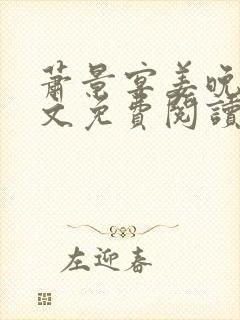 蕭景宴姜晚
文免費閱讀
左迎春